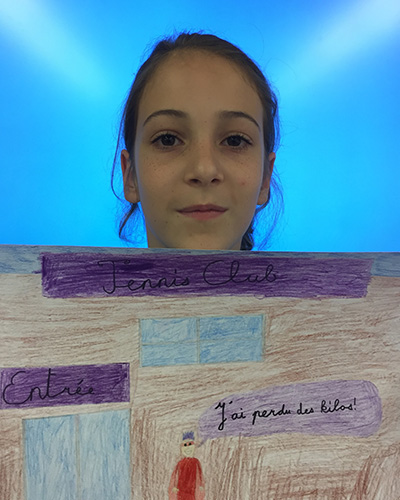 Tennis Club
Entrée
J'ai perdu des kilos!